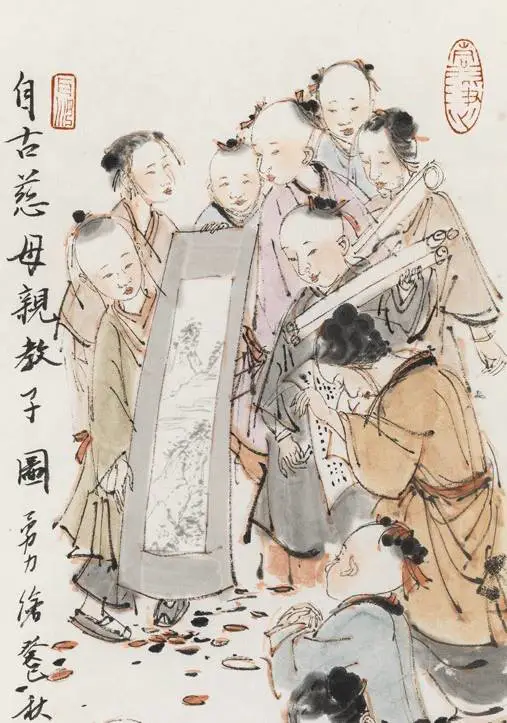 自古慈母親教子圖
勇力繪癸巳秋